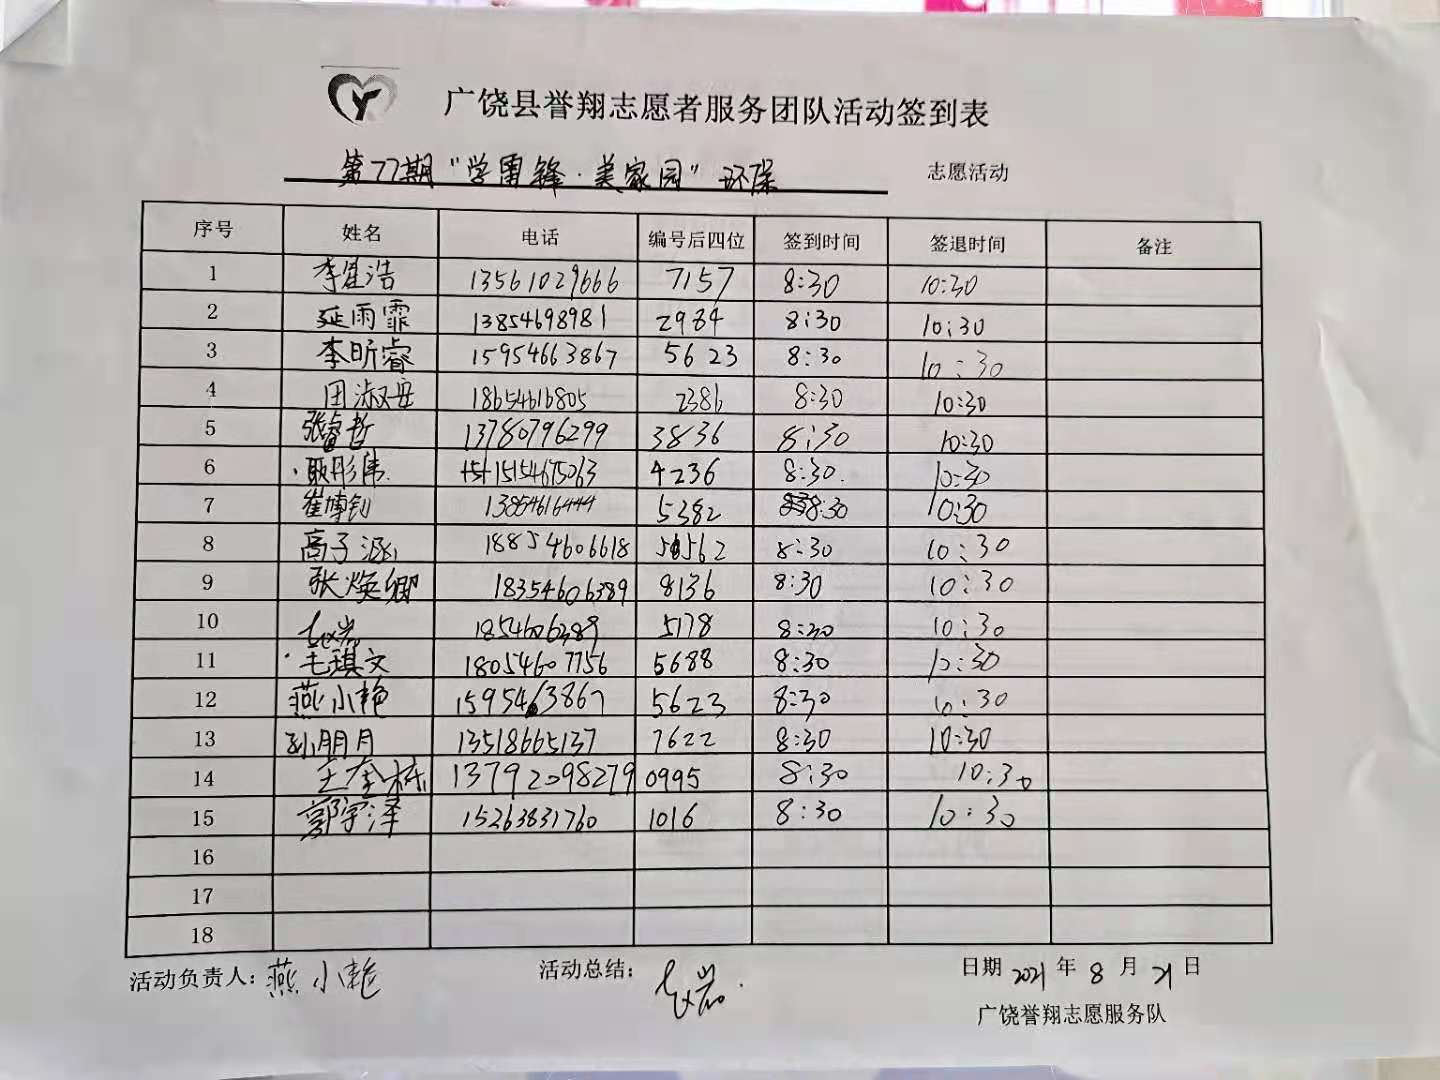 广饶县誉翔志愿者服务团队活动签到表
第77期“学雷锋·美家园”环保 志愿活动
序号 姓名 电话 编号后四位 签到时间 签退时间 备注
1 李星浩 13561029666 7157 8:30 10:30
2 延雨霏 13854698981 2984 8:30 10:30
3 李昕睿 15954663867 5623 8:30 10:30
4 田淑 18654616805 2386 8:30 10:30
5 张睿哲 13780796299 3836 8:30 10:30
6 耿彤伟 15154675063 4236 8:30. 10:30
7 崔博钊 13854616444 5382 8:30 10:30
8 高子涵 18854606618 8:30 10:30
9 张焕卿 18354606389 8136 8:30 10:30
10 赵岩 1854606389 5178 8:30 10:30
11 毛琪文 18054607756 5688 8:30 10:30
12 燕小艳 5623 8:30 10:30
13 孙朋月 13518665137 7622 8:30 10:30
14 王奎栋 13792098279 0995 8:30 10:30
15 郭宇泽 15263831760 1016 8:30 10:30
16
17
18
活动负责人:燕小艳 活动总结: 赵岩. 日期 2021 年 8 月 21 日
广饶誉翔志愿服务队